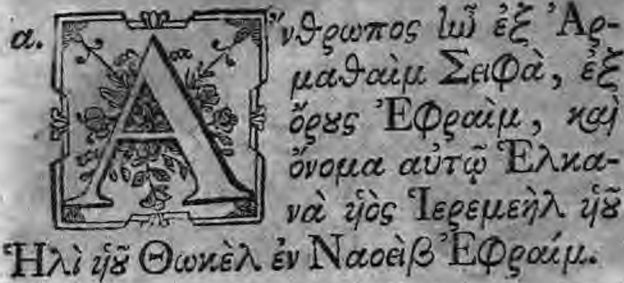 α. Ἄνθρωπος ἦν ἐξ Ἀρ-
μαθαὶμ Σειφὰ, ἐξ
ὄρους Ἐφραὶμ, καὶ
ὄνομα αὐτῷ Ἑλκα-
νὰ υἱὸς Ἱερεμεὴλ υἱοῦ
Ἠλὶ υἱοῦ Θωκὲλ ἐν Νασεὶβ Ἐφραίμ.